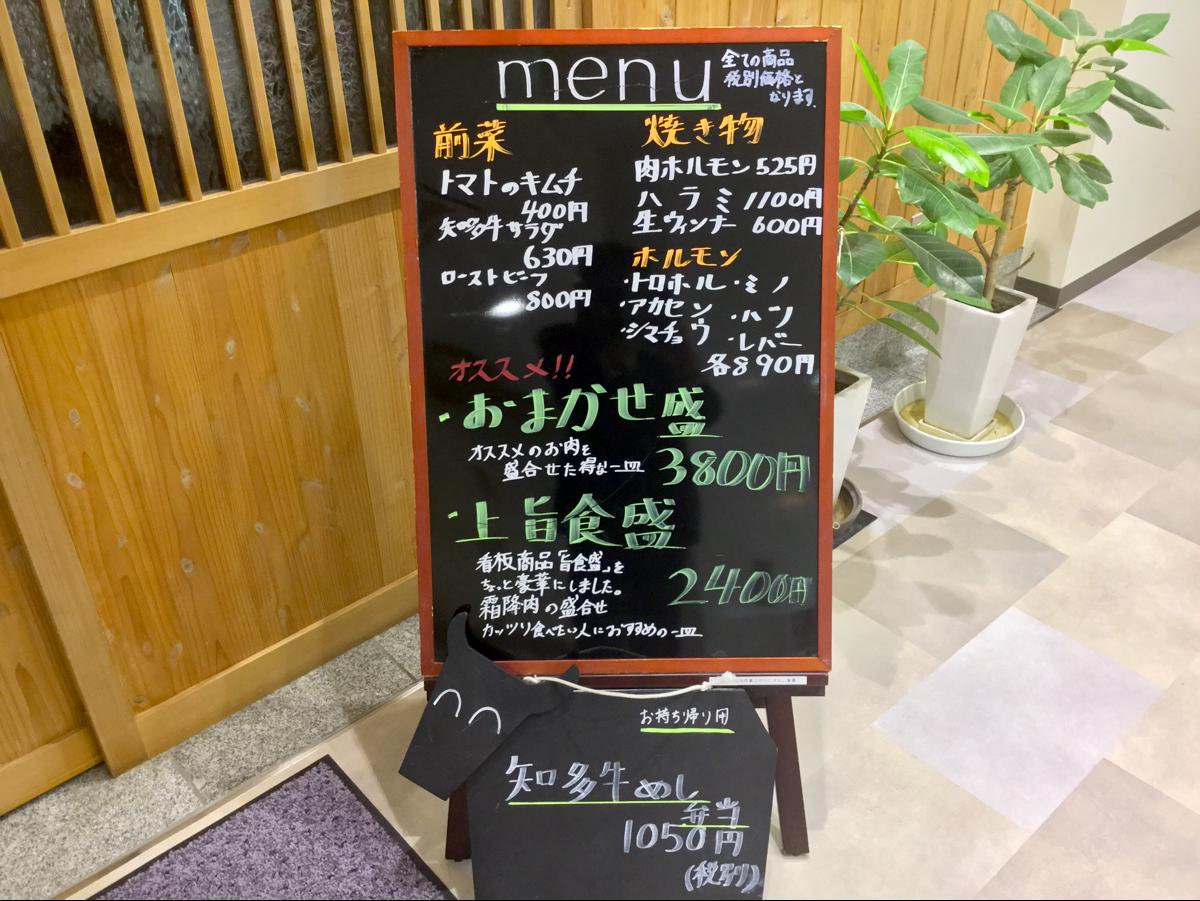 menu
全ての商品
税別価格と
なります。
前菜
トマトのキムチ
400円
知多牛サラダ
630円
ローストビーフ
800円
焼き物
肉ホルモン 525円
ハラミ 1100円
生ウィンナー 600円
ホルモン
・トロホル ・ミノ
・アカセン ・ハツ
・シマチョウ ・レバー
各890円
オススメ!!
・おまかせ盛
オススメのお肉を
盛合せた得な一皿
3800円
・上旨食盛
看板商品「旨食盛」を
ちょっと豪華にしました。
霜降肉の盛合せ
カッツリ食べたい人におすすめの一皿
2400円
お持ち帰り用
知多牛めし
弁当
1050円
(税別)